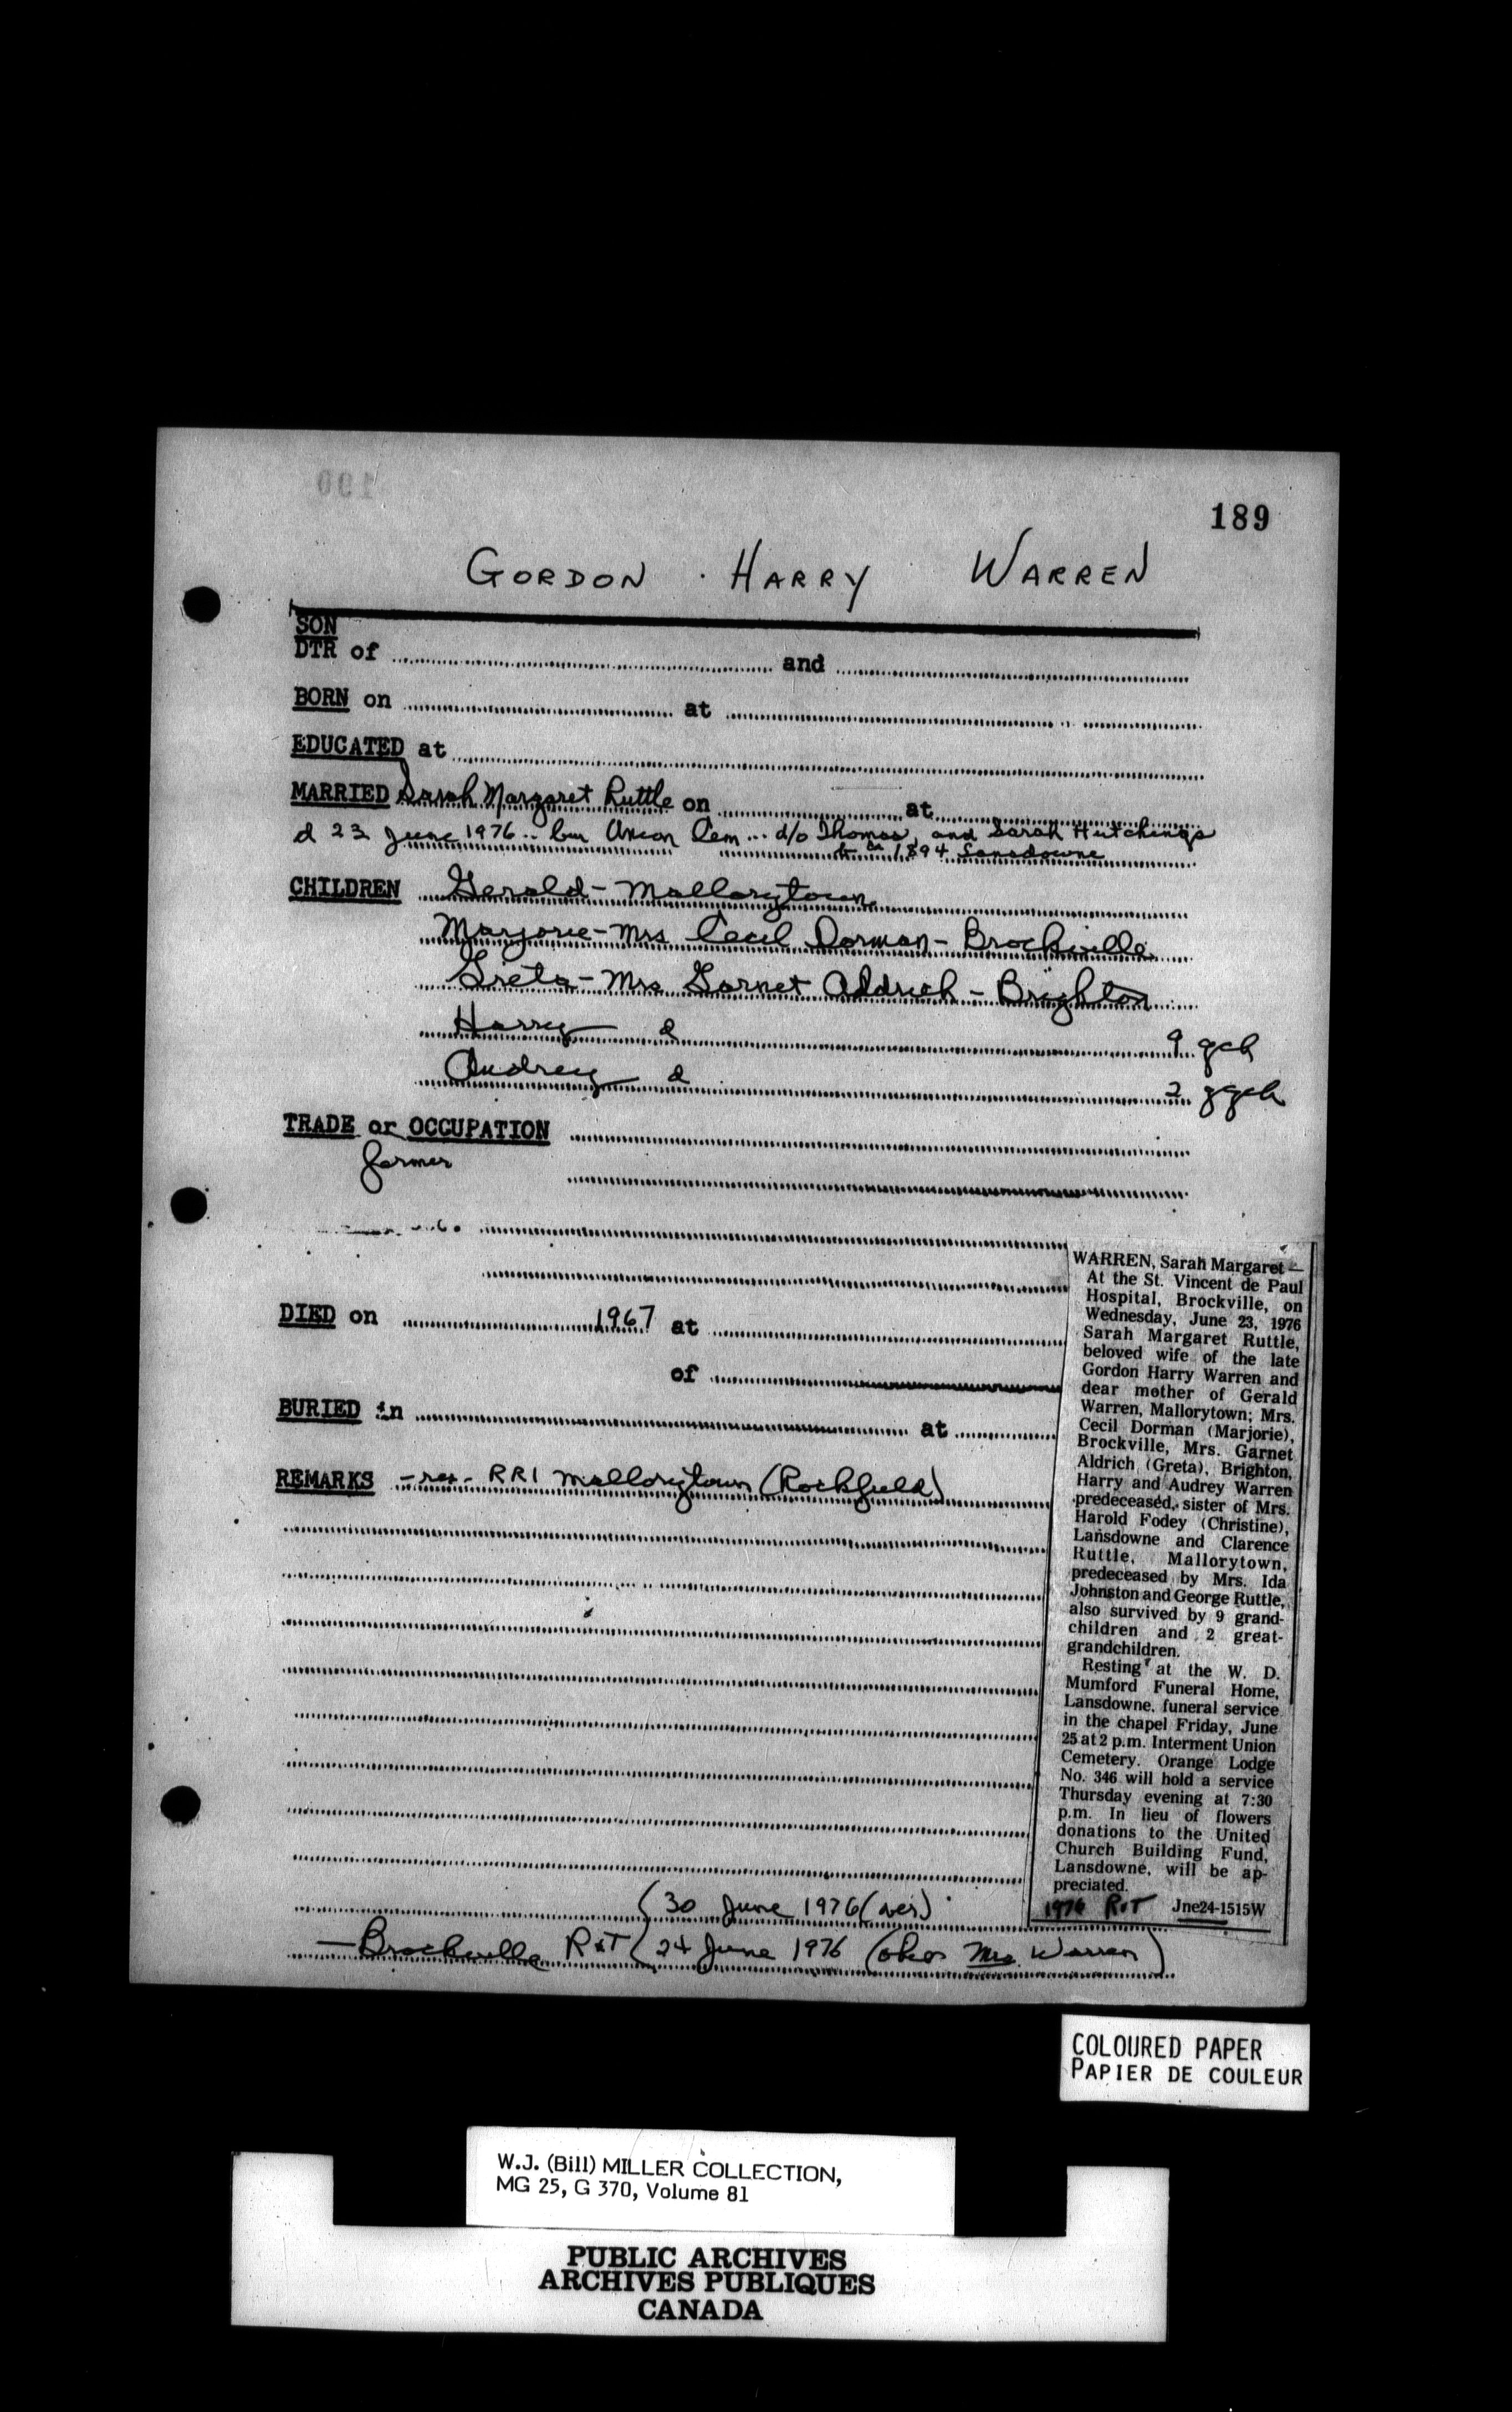 190
189
GORDON HARRY WARREN
SON
DTR of and
BORN on at
EDUCATED at
MARRIED Sarah Margaret Ruttle on at
d 23 June 1976 .. bur Union Cem ... d/o Thomas and Sarah Hutchings
b ca 1894 Lansdowne
CHILDREN Gerald - Mallorytown
Marjorie - Mrs Cecil Dorman - Brockville
Greta - Mrs Garnet Aldrich - Brighton
Harry d 9 gch
Audrey d 2 ggch
TRADE or OCCUPATION
farmer
DIED on 1967 at
of
BURIED in at
REMARKS - res - RR1 Mallorytown (Rockfield)
(30 June 1976
- Brockville R&T (24 June 1976 (obit Mrs. Warren)
WARREN, Sarah Margaret —
At the St. Vincent de Paul
Hospital, Brockville, on
Wednesday, June 23, 1976
Sarah Margaret Ruttle,
beloved wife of the late
Gordon Harry Warren and
dear mother of Gerald
Warren, Mallorytown; Mrs.
Cecil Dorman (Marjorie),
Brockville, Mrs. Garnet
Aldrich (Greta), Brighton,
Harry and Audrey Warren
predeceased, sister of Mrs.
Harold Fodey (Christine),
Lansdowne and Clarence
Ruttle, Mallorytown,
predeceased by Mrs. Ida
Johnston and George Ruttle,
also survived by 9 grand-
children and 2 great-
grandchildren.
Resting at the W. D.
Mumford Funeral Home,
Lansdowne, funeral service
in the chapel Friday, June
25 at 2 p.m. Interment Union
Cemetery. Orange Lodge
No. 346 will hold a service
Thursday evening at 7:30
p.m. In lieu of flowers
donations to the United
Church Building Fund,
Lansdowne, will be ap-
preciated.
1976 R&T Jne24-1515W
COLOURED PAPER
PAPIER DE COULEUR
W.J. (Bill) MILLER COLLECTION,
MG 25, G 370, Volume 81
PUBLIC ARCHIVES
ARCHIVES PUBLIQUES
CANADA